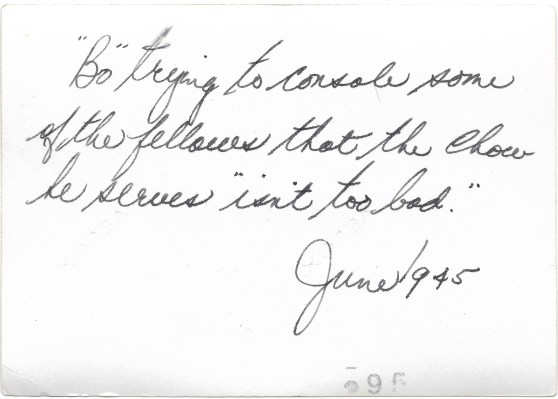 "Bo" trying to console some
of the fellows that the chow
he serves "isn't too bad."
June 1945